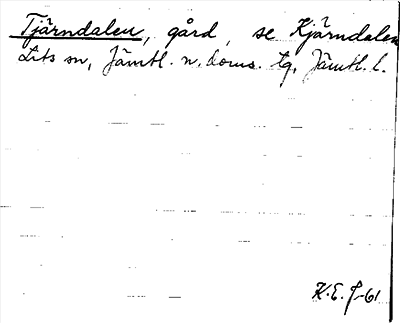 Tjärndalen, gård, se Kjärndalen
Lits sn, Jämtl. n. doms. tg, Jämtl. l.
K.E. J-61